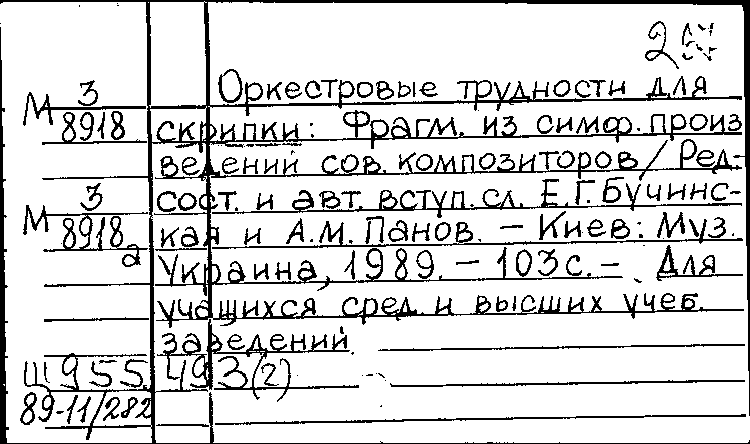 Оркестровые трудности для
М 3/8918 скрипки: Фрагм. из симф. произ
ведений сов. композиторов / Ред.-
сост. и авт. вступ. сл. Е.Г. Бучинс-
М 3/8918а кая и А.М. Панов. – Киев: Муз.
Украина, 1989. – 103 с. – Для
учащихся сред. и высших учеб.
заведений
Щ955.493(2)
89-11/282